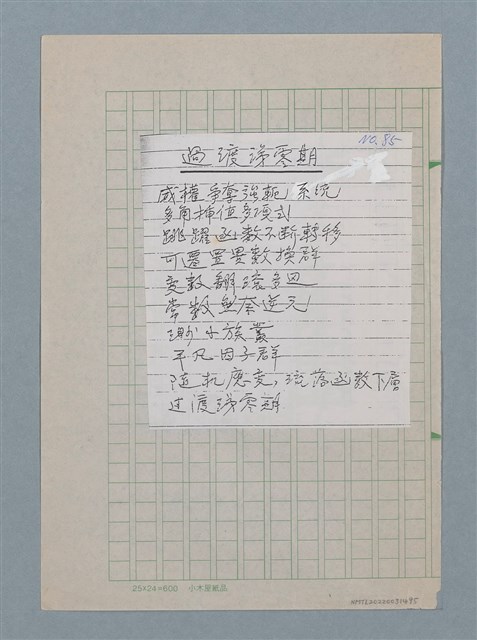 No.85
過渡漲零期
威權爭奪強軛系統
多角插值多項式
跳躍函數不斷轉移
可置疊數換群
變數翻滾多迴
常數無奈逆元
渺小族叢
平凡因子群
隨机應变，流落函数下層
过渡漲零期
25×24=600 小木屋紙品
NMTL20220031495